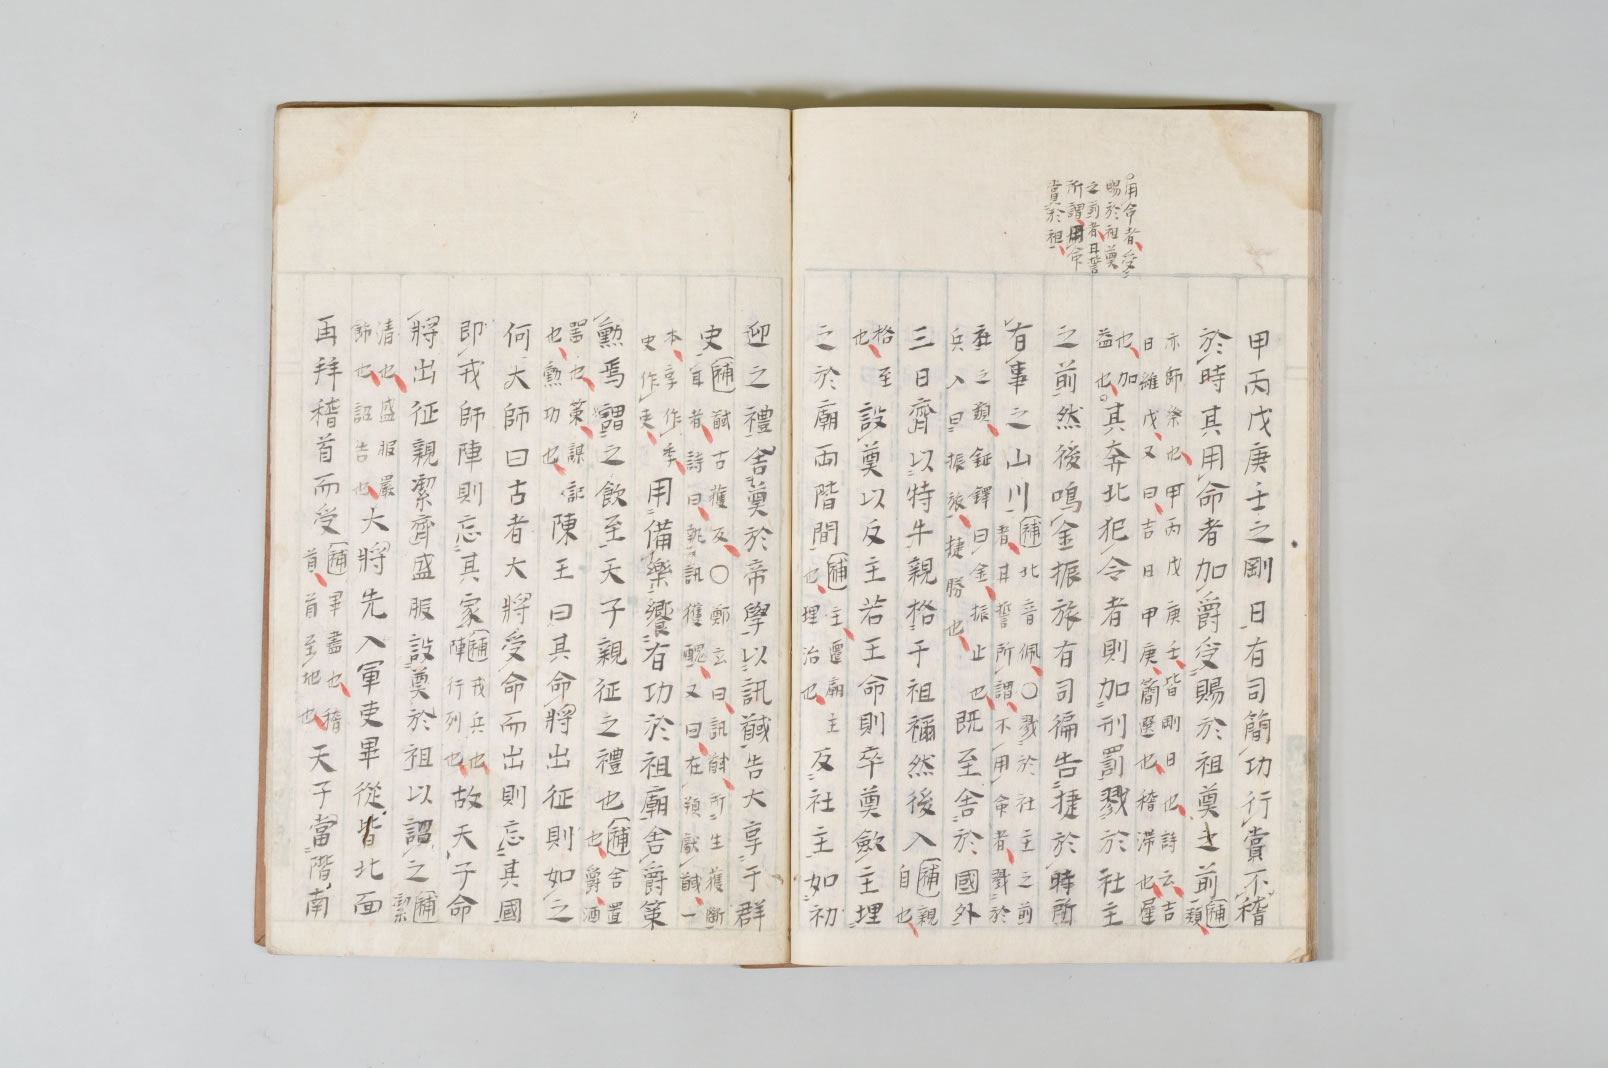 用命者受
賜於祖奠
之前者耳誓
所謂用命
賞於祖
甲丙戊庚壬之剛日有司簡功行賞不稽
於時其用命者加爵受賜於祖奠之前補類
示師祭也甲丙戊庚壬皆剛日也詩云吉
日維戊又曰吉日甲庚簡選也稽滞也
也加
益也其奔北犯令者則加刑罰戮於社主
之前然後鳴金振旅有司徧告捷於時所
有事之山川補北音佩○戮於社主之前
者甘誓所謂不用命者戮於
社之類鉦鐸曰金振止也
兵入曰振旅捷勝也既至舍於國外
三日齊以特牛親格于祖禰然後入補親
自也
格至
也設奠以反主若王命則卒奠斂主埋
之於廟兩階間補主遷廟主
也埋治也反社主如初
迎之禮舍奠於帝學以訊馘告大享于群
史補馘古獲反○鄭玄曰訊馘所生獲斷
耳者詩曰執訊獲醜又曰在頖獻馘一
本享作季
史作吏用備樂饗有功於祖廟舍爵策
勲焉謂之飲至天子親征之禮也補舍置
也爵酒
器也策謀
也勲功也記陳王曰其命將出征則如之
何大師曰古者大將受命而出則忘其國
即戎師陣則忘其家補戎兵也
陣行列也故天子命
將出征親潔齊盛服設奠於祖以詔之補潔
清也盛服嚴
飾也詔告也大將先入軍吏畢從皆北面
再拜稽首而受補畢盡也稽
首首至地也天子當階南